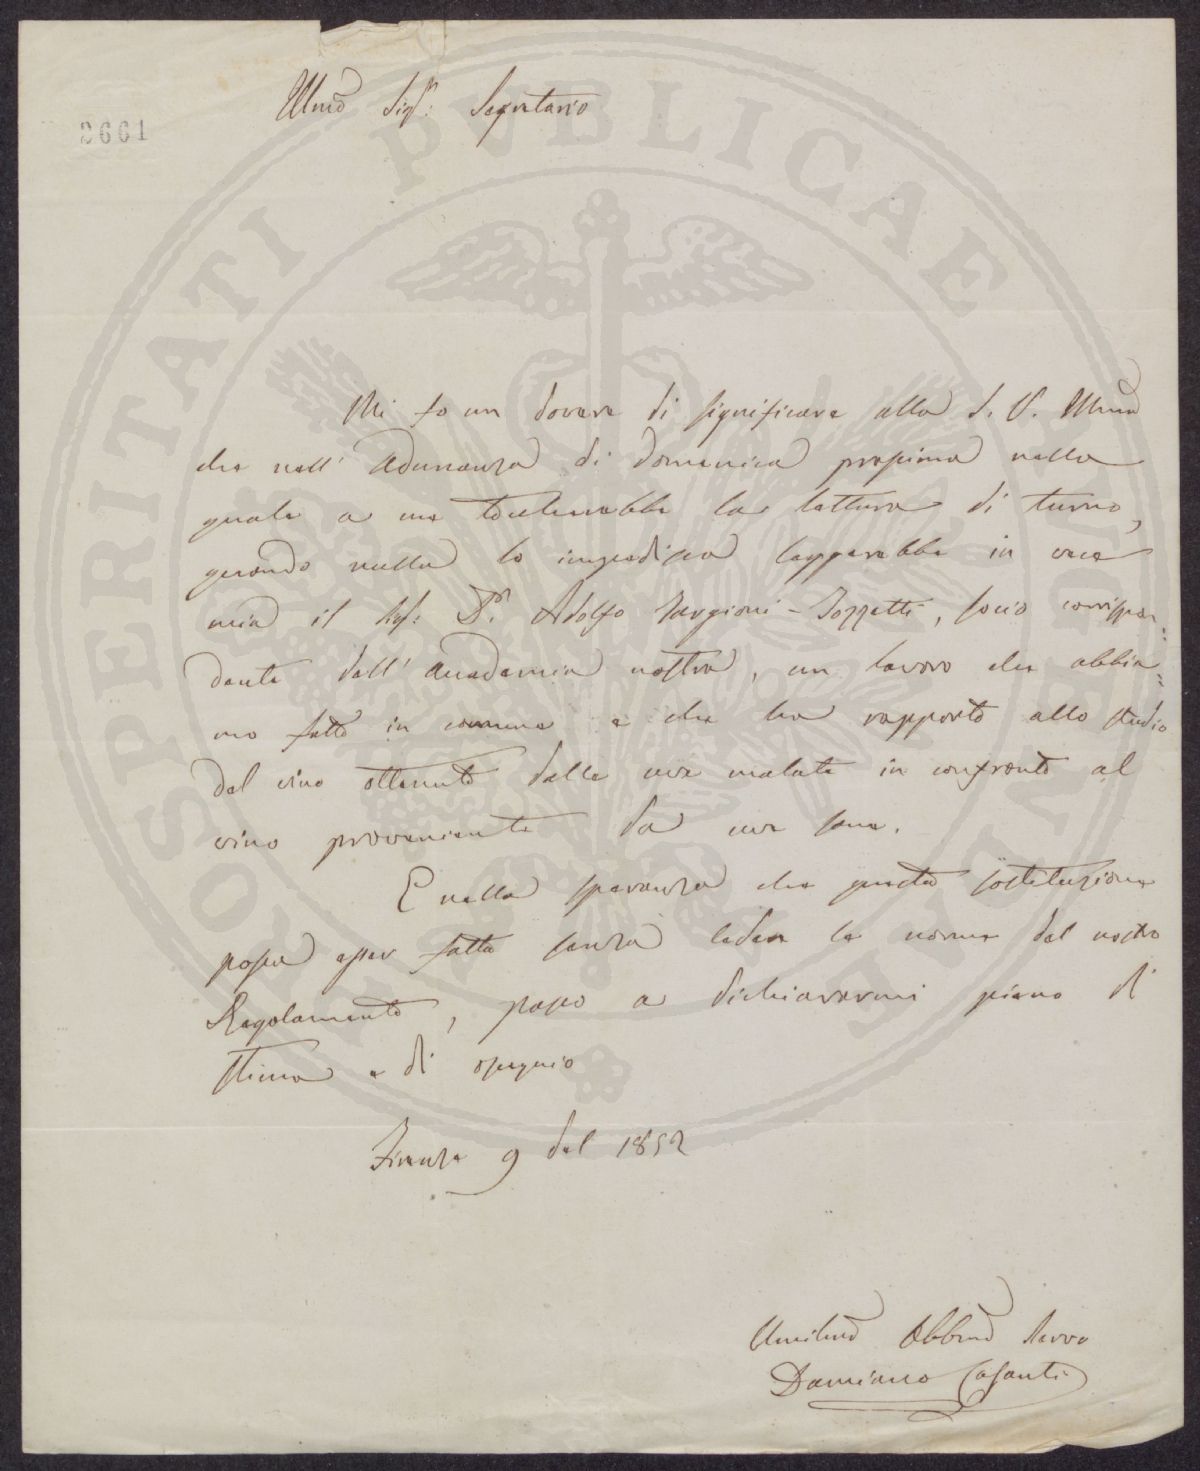 2661
Illmo Sigr. Segretario
Mi fo un dovere di significare alla S. V. Illma
che nell' Adunanza di domenica prossima nella
quale a me toccherebbe la lettura di turno,
quando nulla lo impedisca leggerebbe in vece
mia il Sigr. Dr. Adolfo Targioni-Tozzetti, socio corrispon=
dente dell' Accademia nostra, un lavoro che abbia=
mo fatto in comune e che ha rapporto allo studio
del vino ottenuto dalle uve malate in confronto al
vino proveniente da uve sane.
E nella speranza che questa sostituzione
possa esser fatta senza ledere le norme del nostro
Regolamento, passo a dichiararmi pieno di
stima e di ossequio
Firenze 9 del 1852
Umilmo Obbmo Servo
Damiano Casanti
PROSPERITATI PVBLICAE AVGENDAE